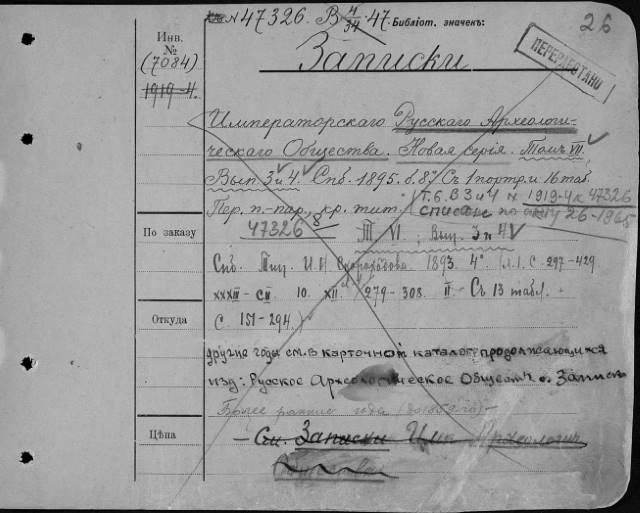 26
№ 47326. В 4/34 47. Библіот. значекъ:
Инв.
№
(7084)
1919-4.
Записки
ПЕРЕРАБОТАНО
Императорскаго Русскаго Археологи-
ческаго Общества. Новая серія. Томъ VII.
Вып. 3 и 4. Спб. 1895. в. 8º Съ 1 портр. и 16 таб.
Пер. п.-пар., кр. тит. Т. 6. В 3 и 4 № 1919-4 к 47326
списан по акту 26-1965
По заказу
47326
Т VI; Вып. 3 и 4
Спб. Тип. И. Н. Скороходова 1893. 4º. л. 1. С. 297-429
XXXIII - CII. 10. XII. 279-308. II - Съ 13 табл.
Откуда
С. 151-294.)
другие годы см. в карточной каталог продолжающихся
изд: Русское Археологическое Общество. Записки
Более ранние года
Цѣна
— См. Записки Имп Археологич